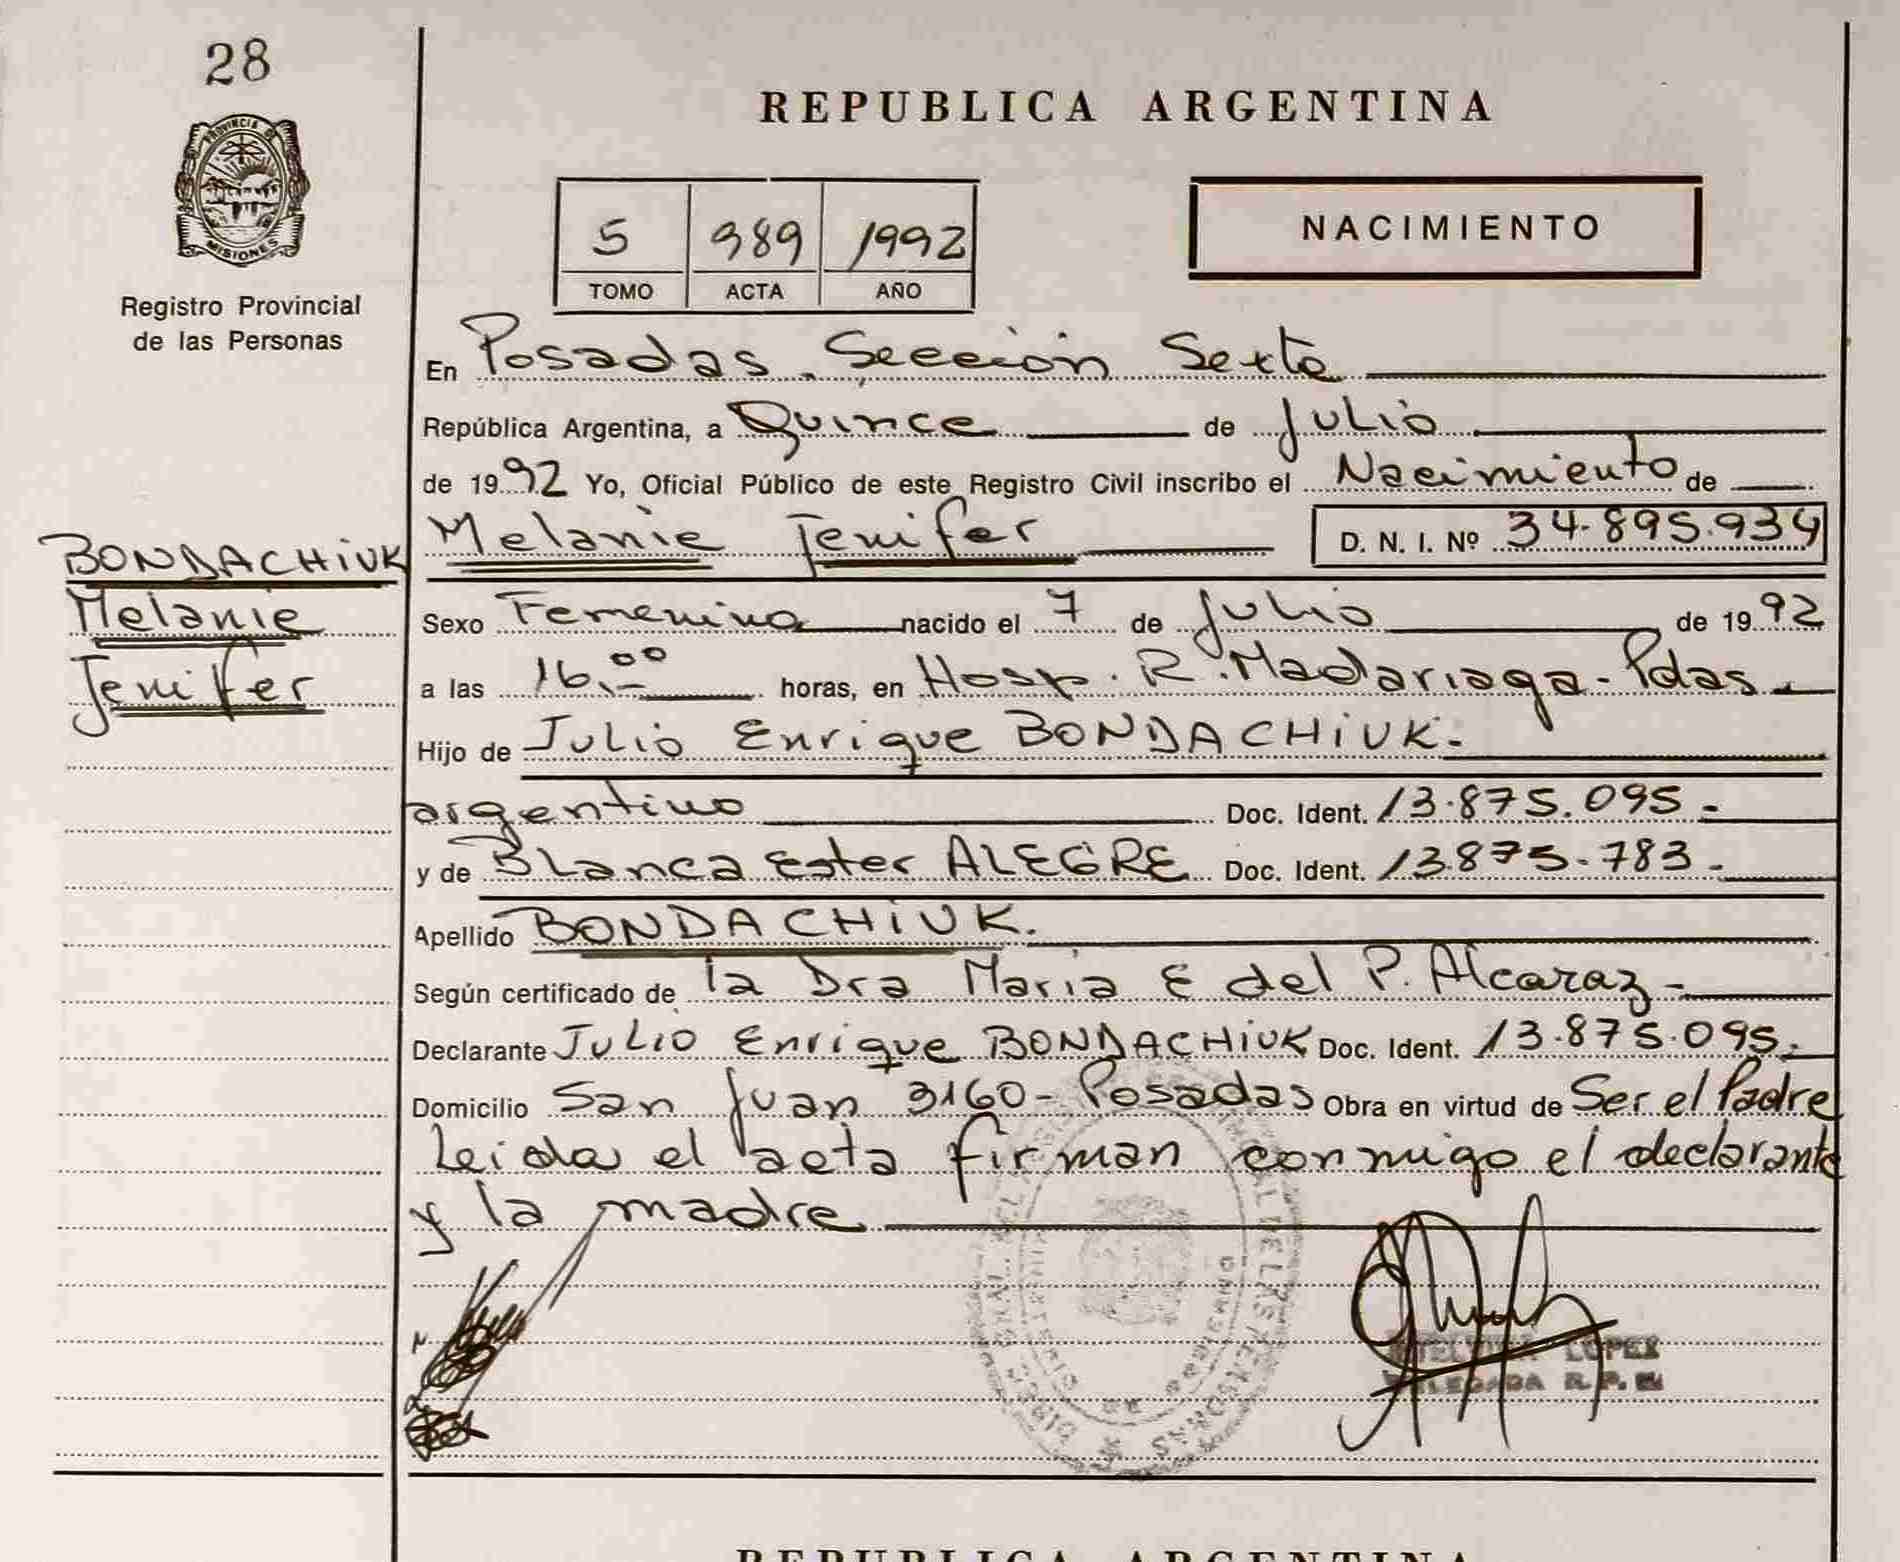 28
PROVINCIA DE
MISIONES
Registro Provincial
de las Personas
BONDACHIUK
Melanie
Jenifer
REPUBLICA ARGENTINA
5 989 1992
TOMO ACTA AÑO
NACIMIENTO
En Posadas, Sección Sexta
República Argentina, a Quince de Julio
de 1992 Yo, Oficial Público de este Registro Civil inscribo el Nacimiento de
Melanie Jenifer D. N. I. Nº 34.895.934
Sexo Femenino nacido el 7 de Julio de 1992
a las 16,00 horas, en Hosp. R. Madariaga - Pdas.
Hijo de Julio Enrique BONDACHIUK.
argentino Doc. Ident. 13.875.095.-
y de Blanca Ester ALEGRE Doc. Ident. 13.875.783.-
Apellido BONDACHIUK.
Según certificado de la Dra Maria E del P. Alcaraz -
Declarante Julio Enrique BONDACHIUK Doc. Ident. 13.875.095.-
Domicilio San Juan 3160 - Posadas Obra en virtud de Ser el Padre
Leida el acta firman conmigo el declarante
y la madre
LOPEZ
DELEGADA R. P.
REPUBLICA ARGENTINA